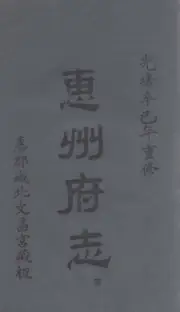 光緒辛巳年重修
惠州府志
郡城北文昌宮藏板